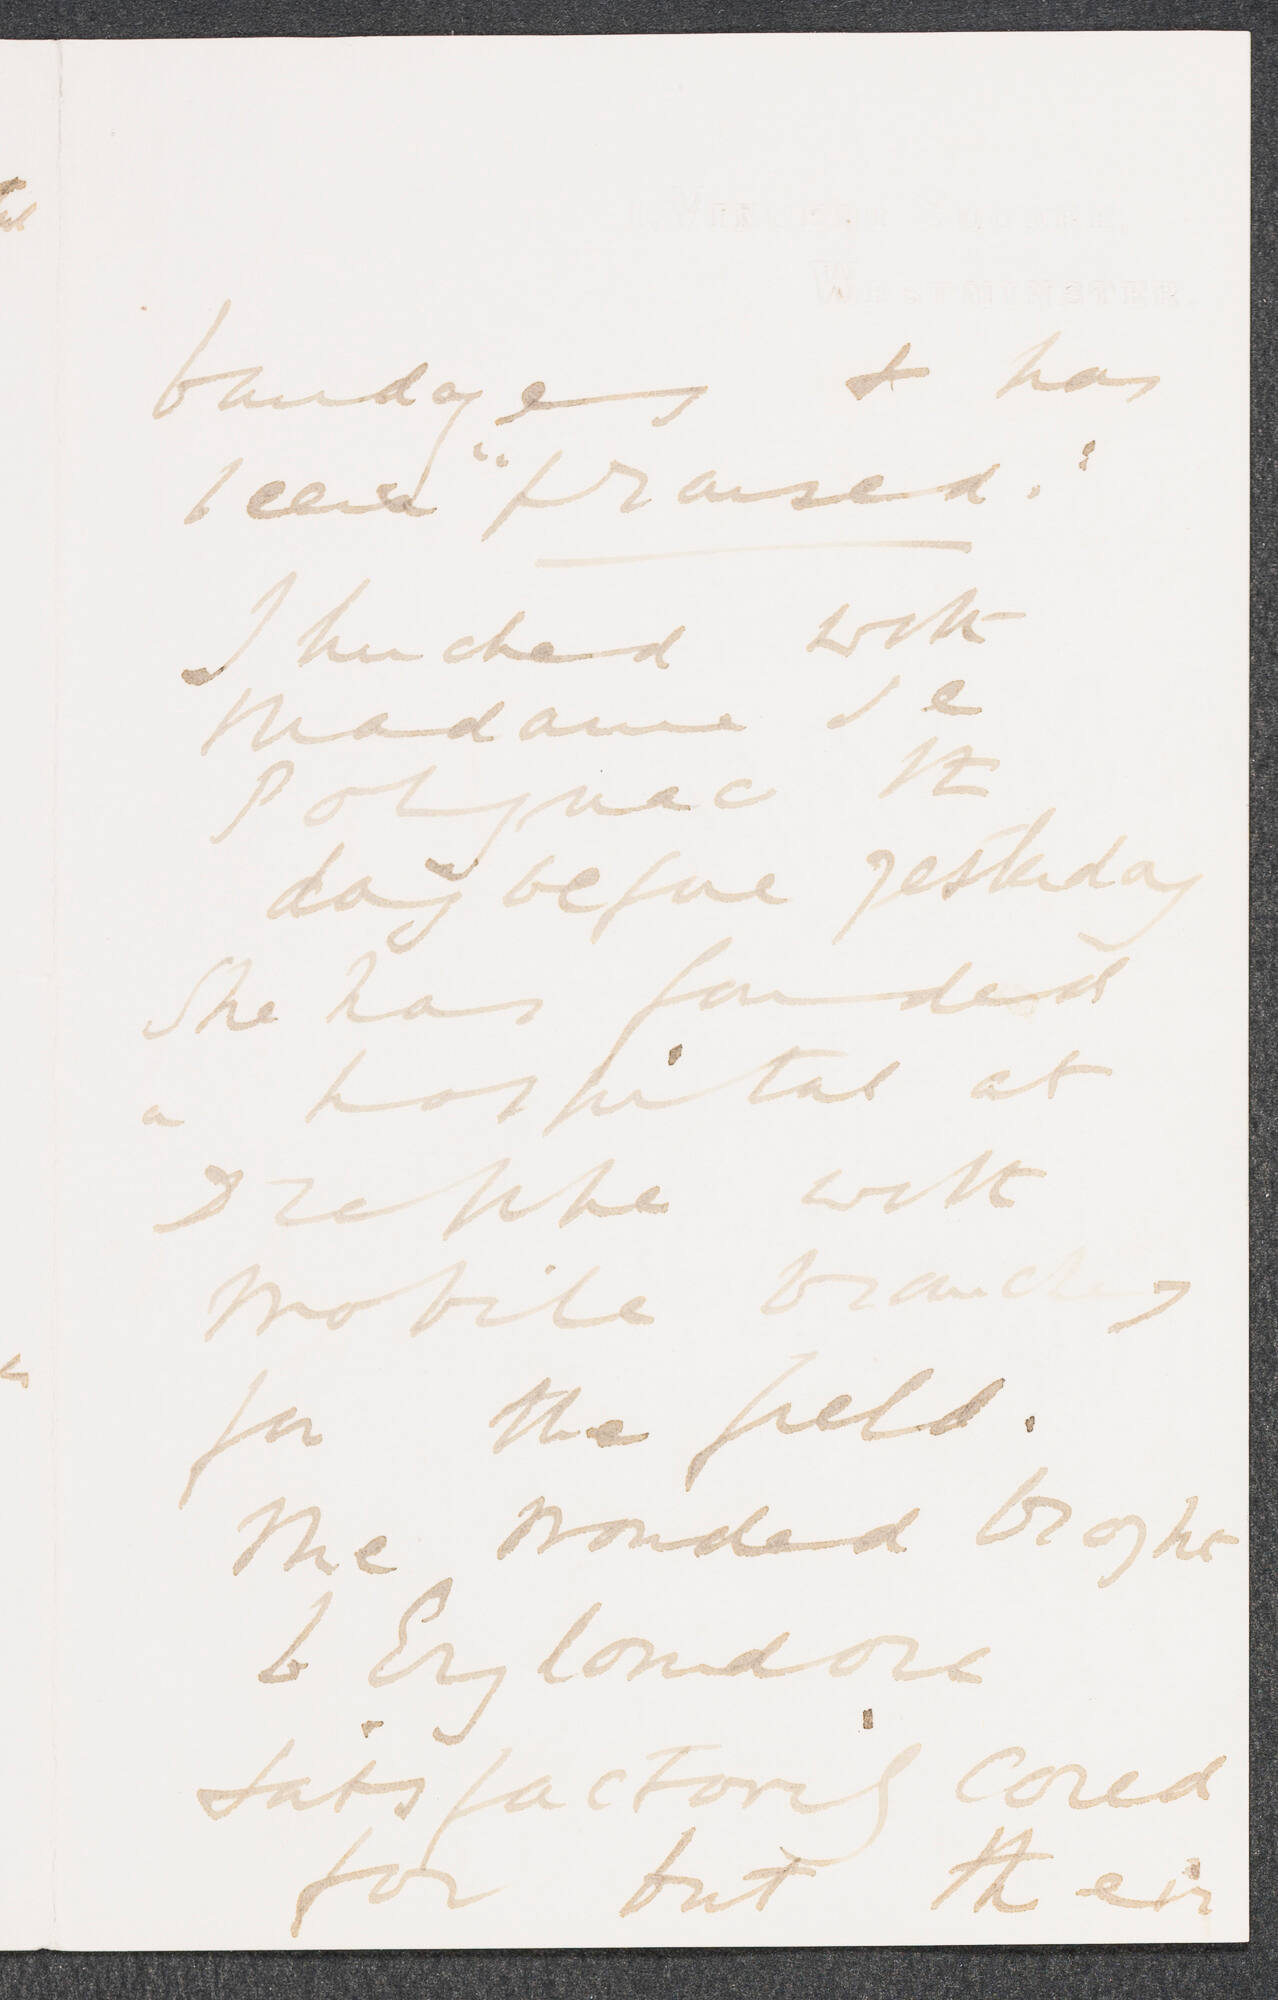 bandages & has
been "praised."
I lunched with
Madame de
Polignac the
day before yesterday
She has founded
a hospital at
Dieppe with
mobile branches
for the field.
The wounded broght
to England are
satisfactorily cared
for but their